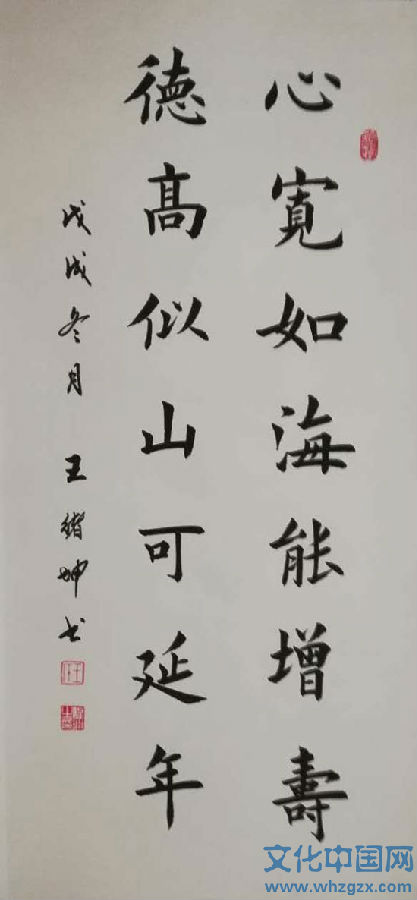 心寬如海能增壽
德高似山可延年
戊戌冬月 王緒坤书
文化中国网
www.whzgzx.com